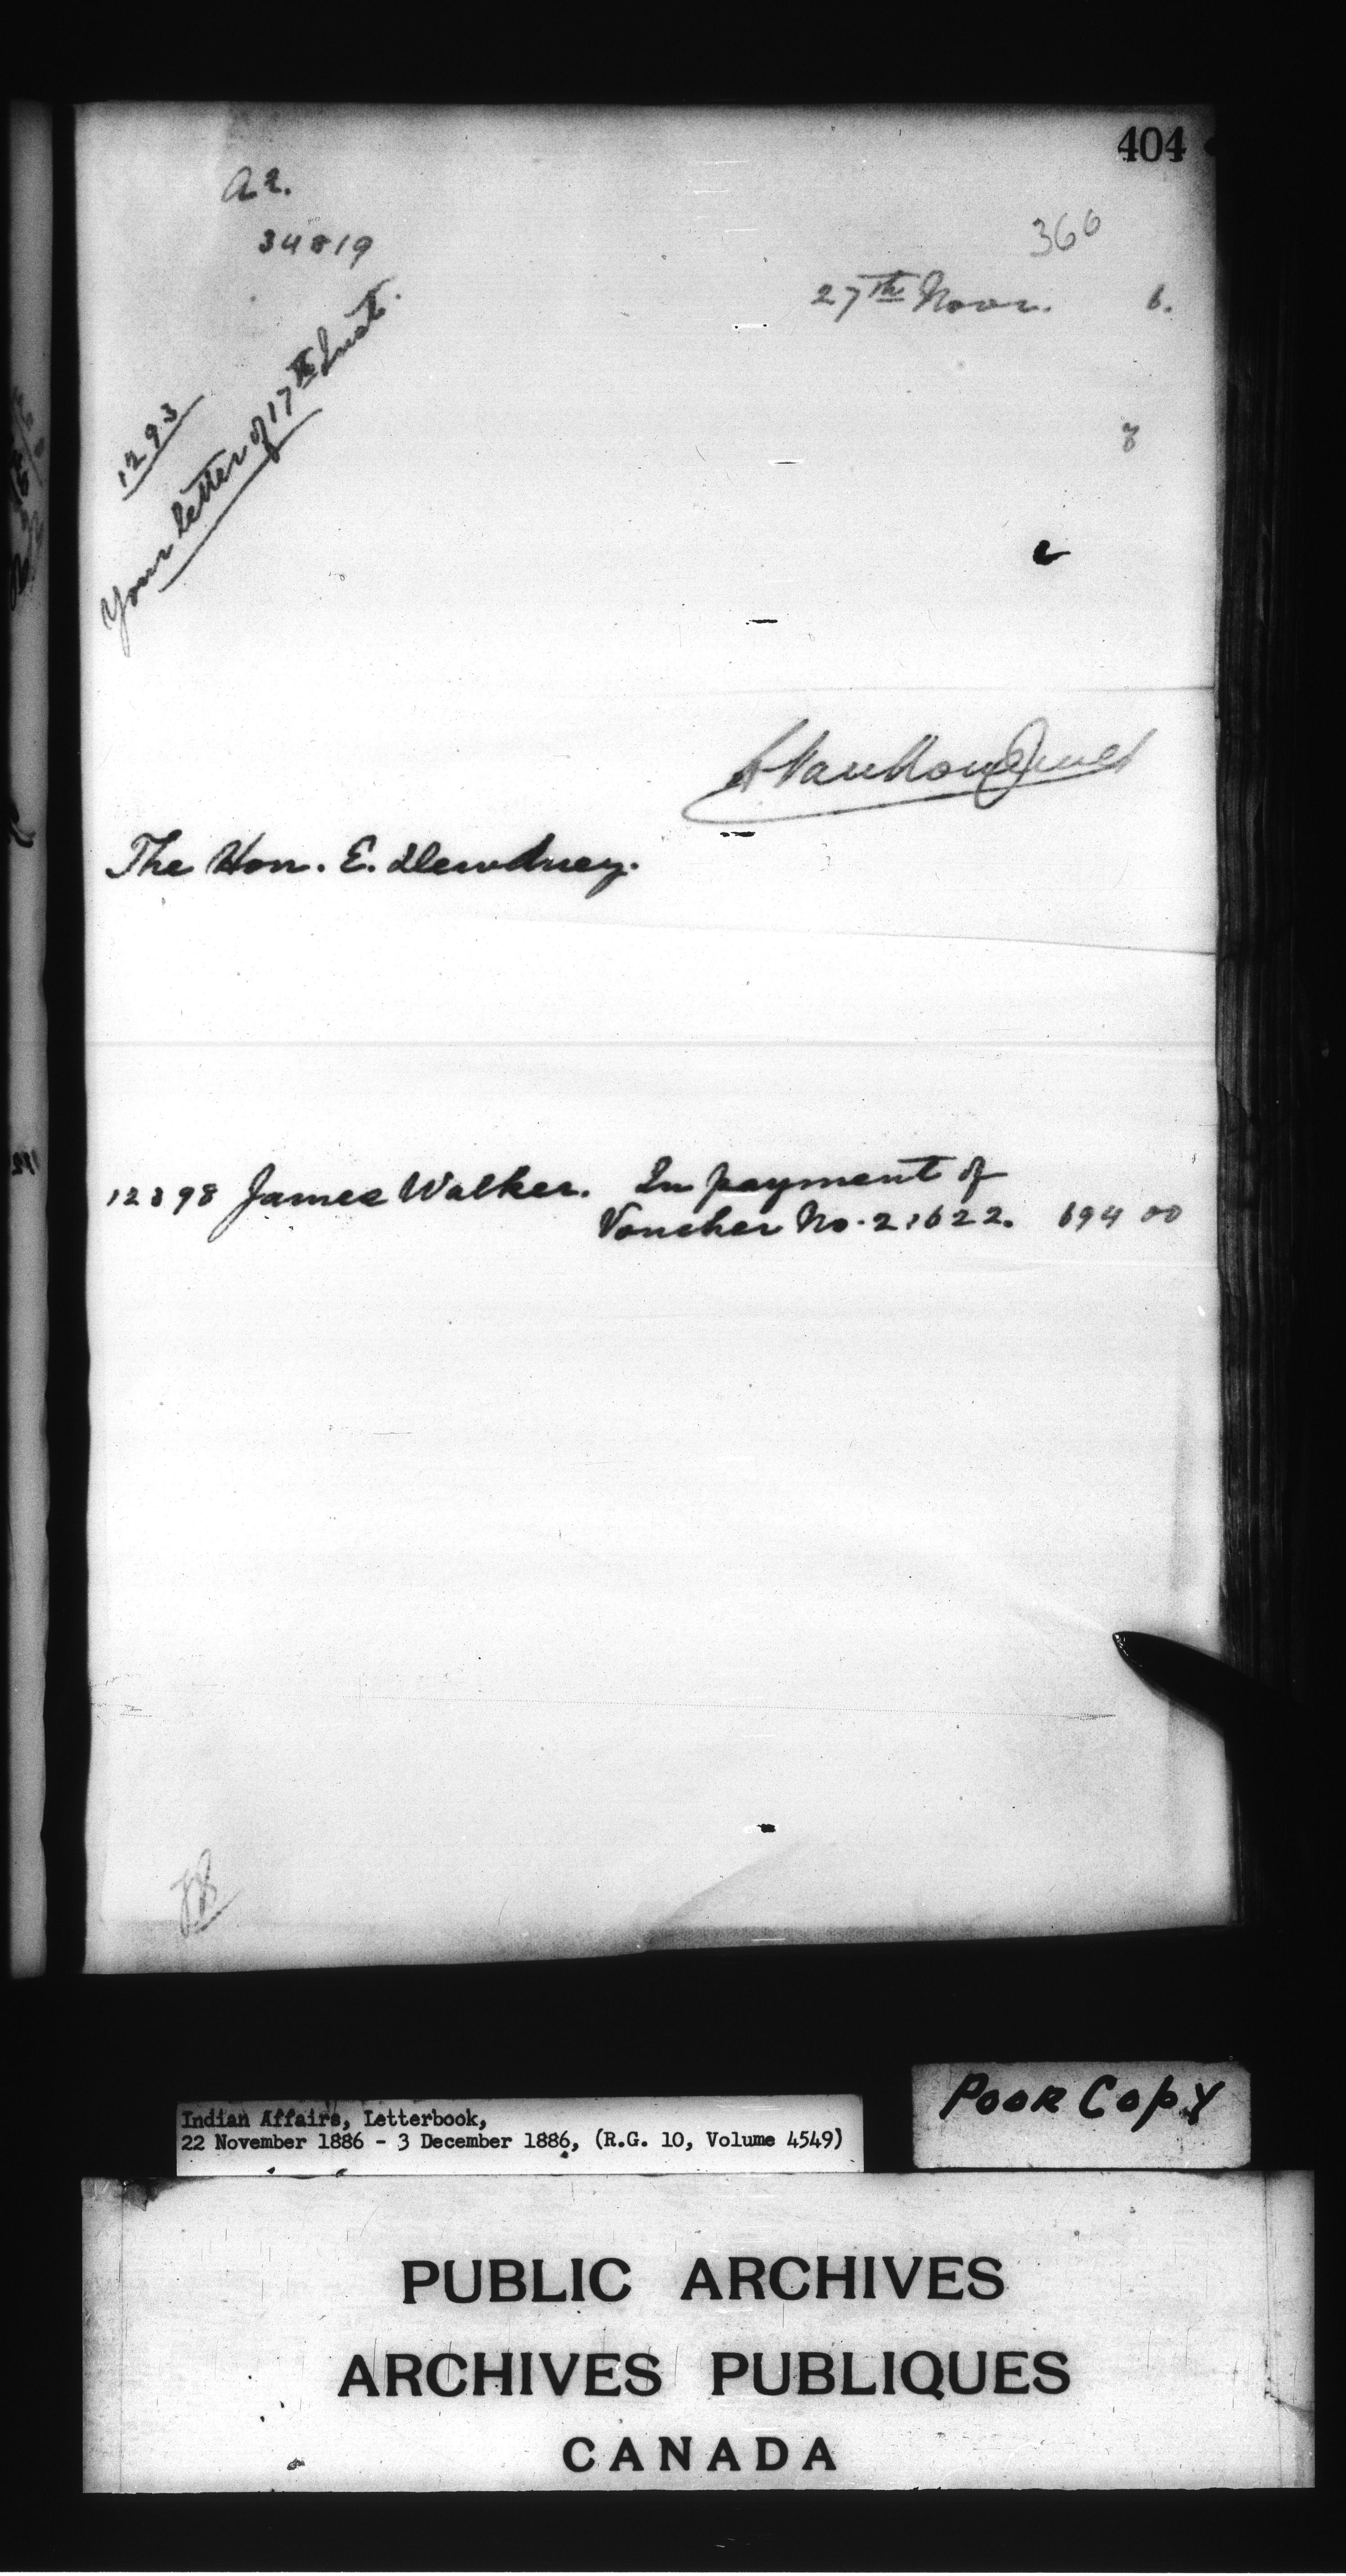 404
a 2.
34819
366
27th Novr. 6.
1293
Your letter of 17th Inst.
8
c
L VanKoughnet
The Hon. E. Dewdney.
12398 James Walker. In payment of
Voucher No. 21622. 694 00
Indian Affairs, Letterbook,
22 November 1886 - 3 December 1886, (R.G. 10, Volume 4549)
POOR COPY
PUBLIC ARCHIVES
ARCHIVES PUBLIQUES
CANADA